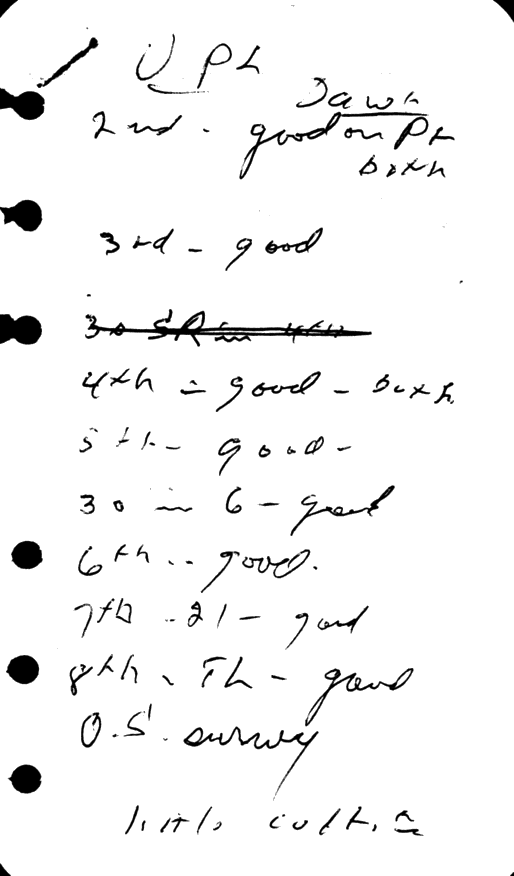 U PL
Dawn
2nd - good on PL
both
3rd - good
30 SR in 4th
4th - good - both
5th - good -
30 in 6 - good
6th - good.
7th - 21 - good
8th - TL - good
O.S. survey
little